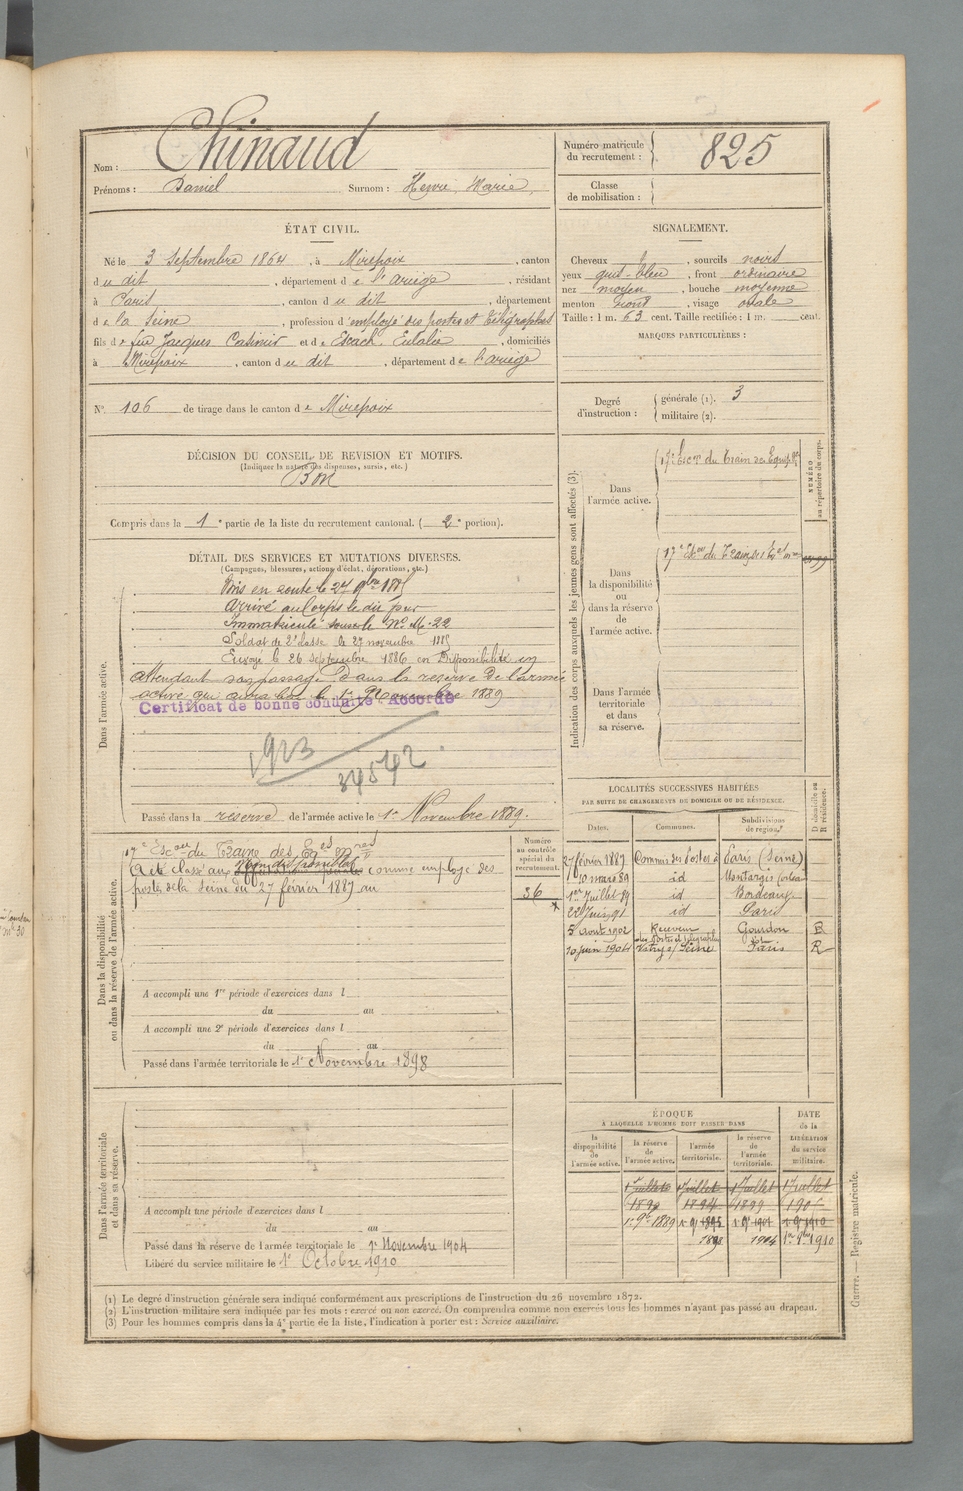 Nom : Chinaud
Prénoms : Daniel Surnom : Henri, Marie,
Numéro matricule du recrutement : 825
Classe de mobilisation :
ÉTAT CIVIL.
Né le 3 Septembre 1864, à Mirepoix, canton
du dit, département de l'Ariège, résidant
à Paris, canton du dit, département
de la Seine, profession d'employé des postes et télégraphes
fils de feu Jacques Casimir et de Escach, Eulalie, domiciliés
à Mirepoix, canton du dit, département de l'Ariège
N° 106 de tirage dans le canton de Mirepoix
SIGNALEMENT.
Cheveux , sourcils noirs
yeux gris-bleu, front ordinaire
nez moyen, bouche moyenne
menton rond, visage ovale
Taille : 1 m. 63 cent. Taille rectifiée : 1 m. cent.
MARQUES PARTICULIÈRES :
Degré d'instruction : générale (1). 3
militaire (2).
DÉCISION DU CONSEIL DE REVISION ET MOTIFS.
(Indiquer la nature des dispenses, sursis, etc.)
Bon
Compris dans la 1e partie de la liste du recrutement cantonal. (2e portion).
DÉTAIL DES SERVICES ET MUTATIONS DIVERSES.
(Campagnes, blessures, actions d'éclat, décorations, etc.)
Dans l'armée active.
Mis en route le 27 9bre 1885
Arrivé au Corps le dit jour
Immatriculé sous le N° M-22
Soldat de 2e classe le 27 novembre 1885
Envoyé le 26 septembre 1886 en Disponibilité en
attendant son passage dans la réserve de l'armée
active qui aura lieu le 1er Novembre 1889
Certificat de bonne conduite Accordé
1923
34542
Passé dans la réserve de l'armée active le 1er Novembre 1889.
Indication des corps auxquels les jeunes gens sont affectés (3).
NUMÉRO au répertoire du corps.
Dans l'armée active.
17e Escon du Train des Equip. res
Dans la disponibilité ou dans la réserve de l'armée active.
17e Escon du Train des Eq.
Dans l'armée territoriale et dans sa réserve.
Dans la disponibilité ou dans la réserve de l'armée active.
17e Escon du Train des Eqes
A été classé aux comme employé des
postes de la Seine du 27 février 1887 au
Numéro au contrôle spécial du recrutement.
36
A accompli une 1re période d'exercices dans l
du au
A accompli une 2e période d'exercices dans l
du au
Passé dans l'armée territoriale le 1er Novembre 1898
LOCALITÉS SUCCESSIVES HABITÉES
PAR SUITE DE CHANGEMENTS DE DOMICILE OU DE RÉSIDENCE.
Dates. Communes. Subdivisions de région. D domicile ou R résidence.
27 février 1887 Commis des Postes à Paris (Seine)
10 mars 89 id Montargis
1er Juillet 89 id Bordeaux
22 Juin 91 id Paris
5 août 1902 Receveur des Postes et télégraphes Gourdon R
10 juin 1904 Vitry s/ Seine Paris R
Dans l'armée territoriale et dans sa réserve.
A accompli une période d'exercices dans l
du au
Passé dans la réserve de l'armée territoriale le 1er Novembre 1904
Libéré du service militaire le 1er Octobre 1910
ÉPOQUE
A LAQUELLE L'HOMME DOIT PASSER DANS
DATE de la LIBÉRATION du service militaire.
la disponibilité de l'armée active. la réserve de l'armée active. l'armée territoriale. la réserve de l'armée territoriale.
1 Juillet 1 Juillet 1 Juillet 1 Juillet
1894 1899
1er 9bre 1889 1er 9bre 1895 1er 9bre 1901 1er 9bre 1910
1898 1904 1er 9bre 1910
(1) Le degré d'instruction générale sera indiqué conformément aux prescriptions de l'instruction du 26 novembre 1872.
(2) L'instruction militaire sera indiquée par les mots : exercé ou non exercé. On comprendra comme non exercés tous les hommes n'ayant pas passé au drapeau.
(3) Pour les hommes compris dans la 4e partie de la liste, l'indication à porter est : Service auxiliaire.
Guerre. — Registre matricule.